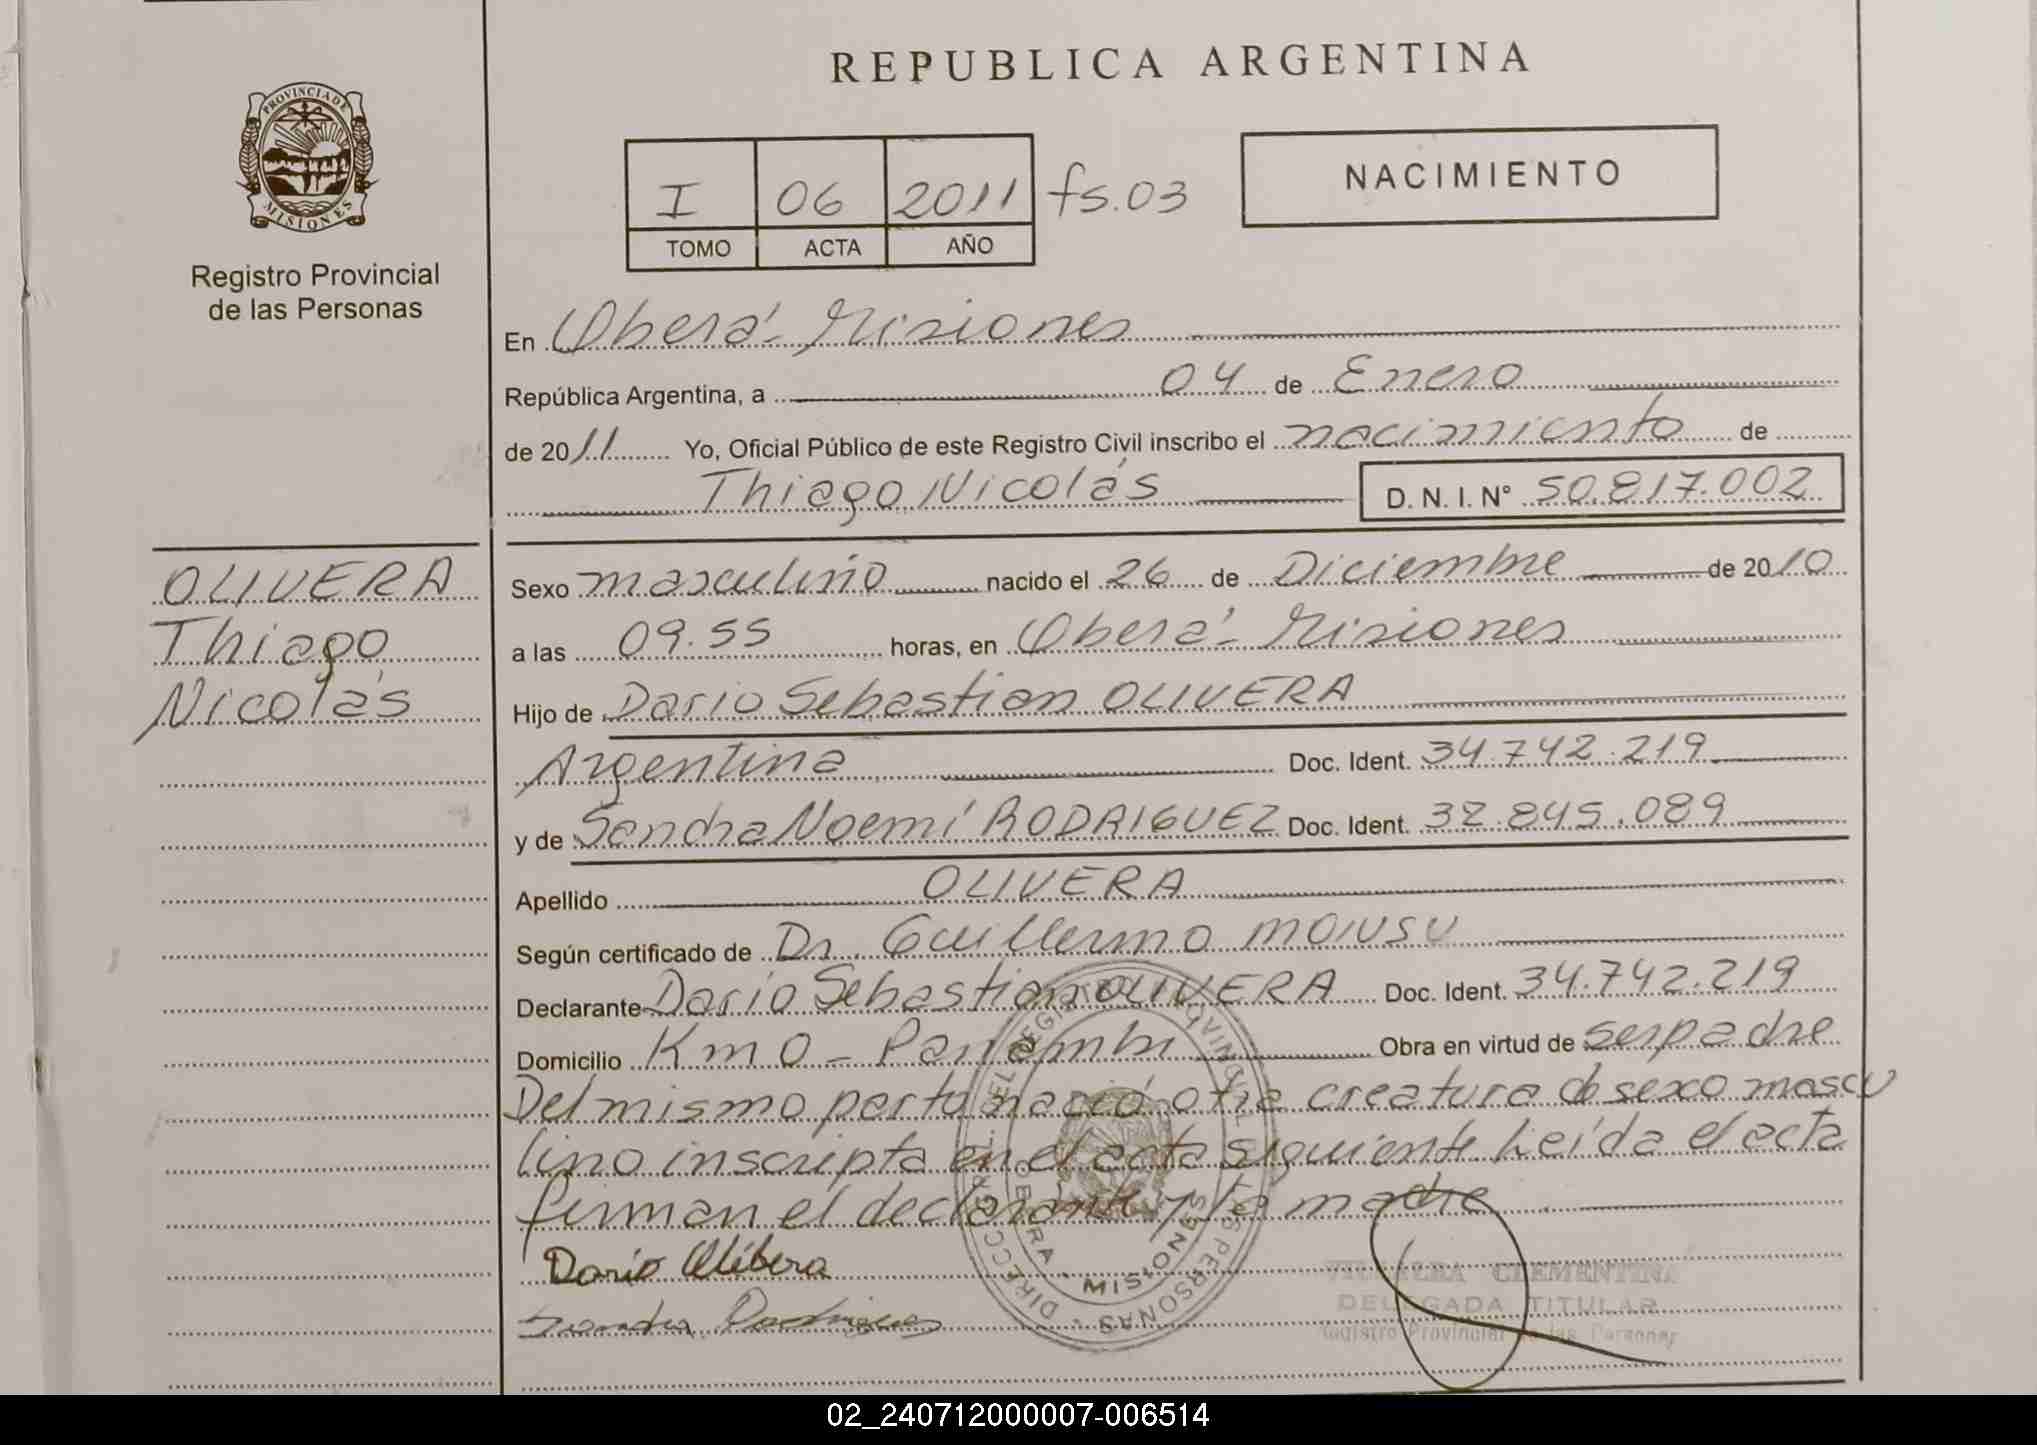 REPUBLICA ARGENTINA
PROVINCIA DE
MISIONES
Registro Provincial
de las Personas
I 06 2011 fs.03
TOMO ACTA AÑO
NACIMIENTO
En Oberá - Misiones
República Argentina, a 04 de Enero
de 2011 Yo, Oficial Público de este Registro Civil inscribo el nacimiento de
Thiago Nicolás D. N. I. N° 50.817.002
OLIVERA
Thiago
Nicolás
Sexo masculino nacido el 26 de Diciembre de 2010
a las 09.55 horas, en Oberá - Misiones
Hijo de Dario Sebastian OLIVERA
Argentina Doc. Ident. 34.742.219
y de Sandra Noemí RODRIGUEZ Doc. Ident. 32.845.089
Apellido OLIVERA
Según certificado de Dr. Guillermo
Declarante Darío Sebastian OLIVERA Doc. Ident. 34.742.219
Domicilio Km 0 - Panambi Obra en virtud de ser padre
Del mismo parto nació otra creatura de sexo mascu
lino inscripta en el acta siguiente Leída el acta
firman el declarante y la madre
Darío Olibera
Sandra Rodriguez
MISIONES
CLEMENTINA
DELEGADA TITULAR
Registro Provincial de las Personas
02_240712000007-006514